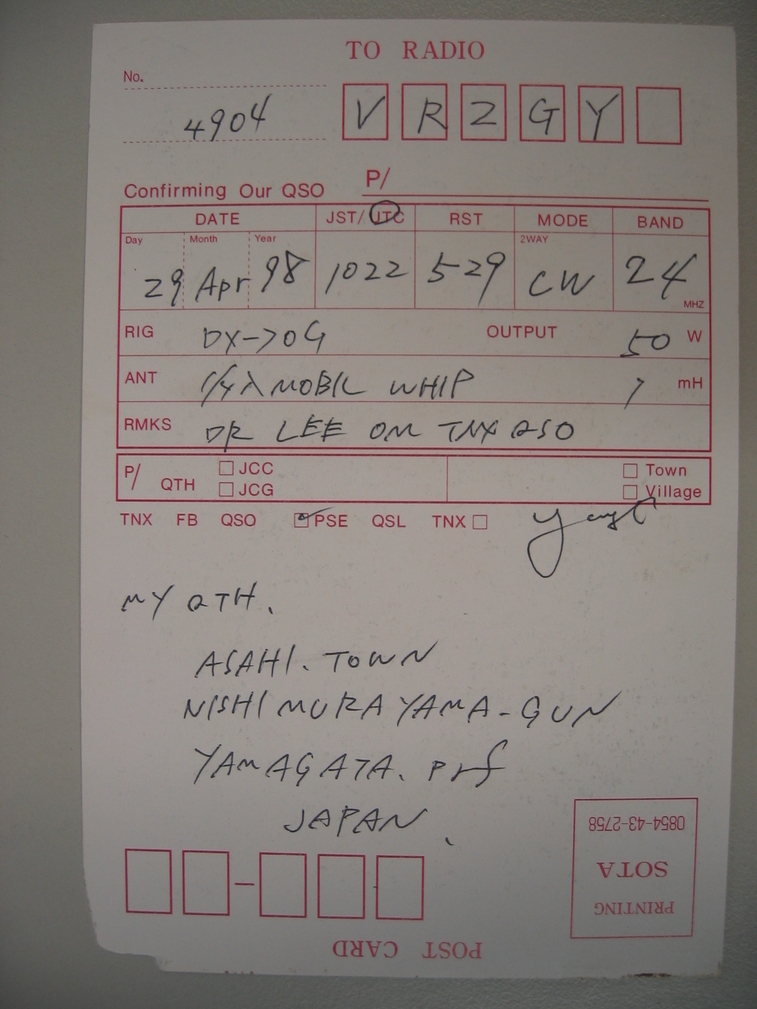 TO RADIO
No.
4904 V R 2 G Y
Confirming Our QSO P/
DATE JST/UTC RST MODE BAND
Day Month Year 2WAY
29 Apr 98 1022 529 CW 24
MHZ
RIG DX-70G OUTPUT 50 W
ANT 1/4λ MOBIL WHIP 7 mH
RMKS DR LEE OM TNX QSO
P/ QTH JCC Town
JCG Village
TNX FB QSO PSE QSL TNX
MY QTH.
ASAHI. TOWN
NISHIMURAYAMA-GUN
YAMAGATA. prf
JAPAN.
POST CARD
PRINTING
SOTA
0854-43-2758